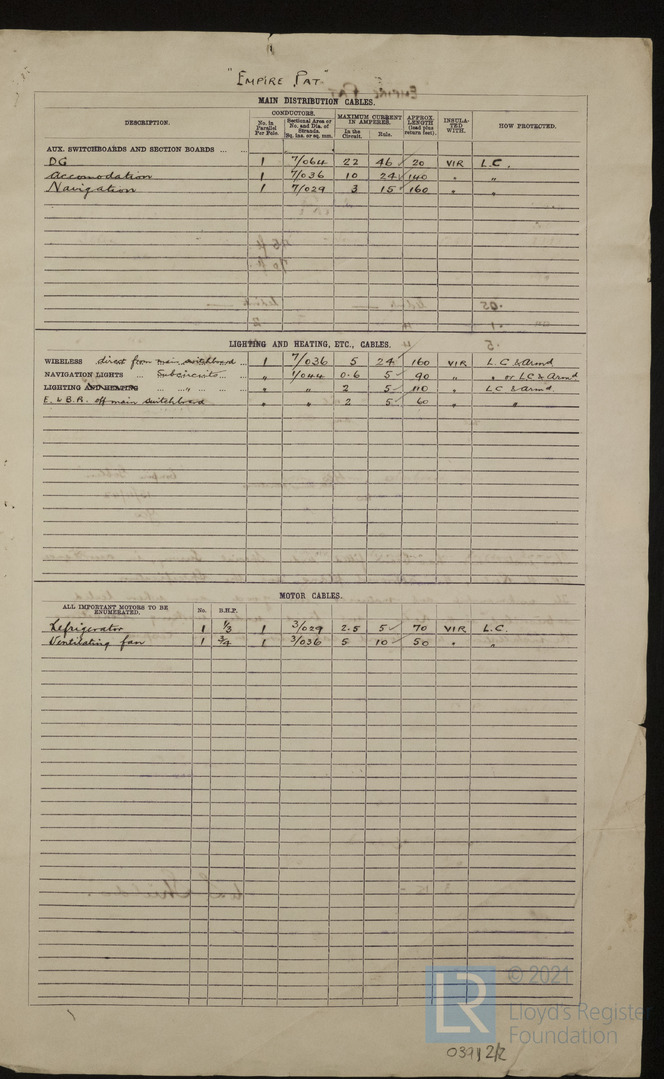 "EMPIRE PAT"
MAIN DISTRIBUTION CABLES.
DESCRIPTION. CONDUCTORS. MAXIMUM CURRENT IN AMPERES. APPROX. LENGTH (lead plus return feet). INSULATED WITH. HOW PROTECTED.
No. in Parallel Per Pole. Sectional Area or No. and Dia. of Strands. Sq. ins. or sq. mm. In the Circuit. Rule.
AUX. SWITCHBOARDS AND SECTION BOARDS ... ...
DG 1 7/064 22 46 ✓ 20 VIR L.C.
Accomodation 1 7/036 10 24 ✓ 140 " "
Navigation 1 7/029 3 15 ✓ 160 " "
LIGHTING AND HEATING, ETC., CABLES.
WIRELESS direct from main switchboard ... 1 7/036 5 24 ✓ 160 VIR L.C & Armd
NAVIGATION LIGHTS ... Subcircuits ... ... " 1/044 0.6 5 ✓ 90 " " or LC & Armd
LIGHTING AND HEATING ... " ... " " 2 5 ✓ 110 " LC & armd.
E. & B.R. off main switchboard " " 2 5 ✓ 60 " "
MOTOR CABLES.
ALL IMPORTANT MOTORS TO BE ENUMERATED. No. B.H.P.
Refrigerator 1 1/3 1 3/029 2.5 5 ✓ 70 VIR L.C.
Ventilating fan 1 3/4 1 3/036 5 10 ✓ 50 " "
LR © 2021
Lloyd's Register
Foundation
0391 2/2